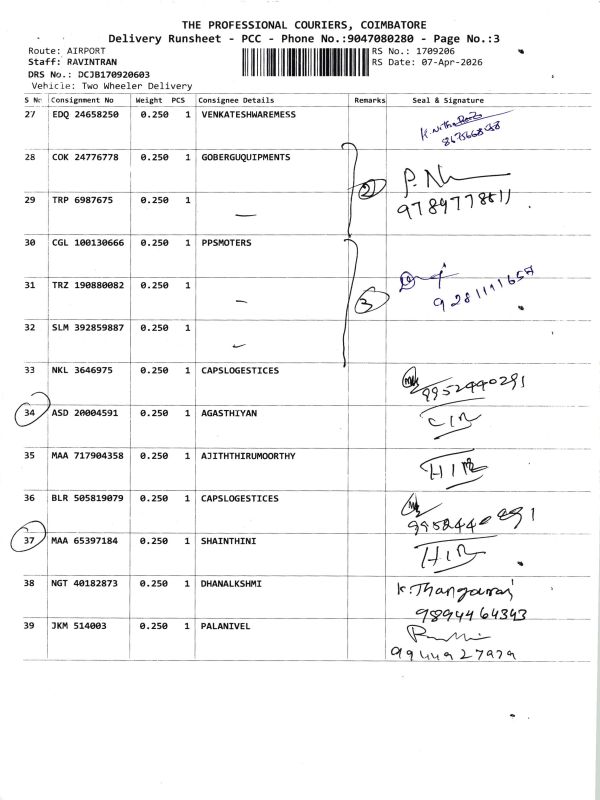 THE PROFESSIONAL COURIERS, COIMBATORE
Delivery Runsheet - PCC - Phone No.:9047080280 - Page No.:3
Route: AIRPORT RS No.: 1709206
Staff: RAVINTRAN RS Date: 07-Apr-2026
DRS No.: DCJB170920603
Vehicle: Two Wheeler Delivery
S No Consignment No Weight PCS Consignee Details Remarks Seal & Signature
27 EDQ 24658250 0.250 1 VENKATESHWAREMESS
28 COK 24776778 0.250 1 GOBERGUQUIPMENTS
2
9789778811
29 TRP 6987675 0.250 1 —
30 CGL 100130666 0.250 1 PPSMOTERS
31 TRZ 190880082 0.250 1 —
3
32 SLM 392859887 0.250 1 —
33 NKL 3646975 0.250 1 CAPSLOGESTICES
9952440291
34 ASD 20004591 0.250 1 AGASTHIYAN
35 MAA 717904358 0.250 1 AJITHTHIRUMOORTHY
36 BLR 505819079 0.250 1 CAPSLOGESTICES
37 MAA 65397184 0.250 1 SHAINTHINI
38 NGT 40182873 0.250 1 DHANALKSHMI K. Thangaraj
9894464343
39 JKM 514003 0.250 1 PALANIVEL
9944927979